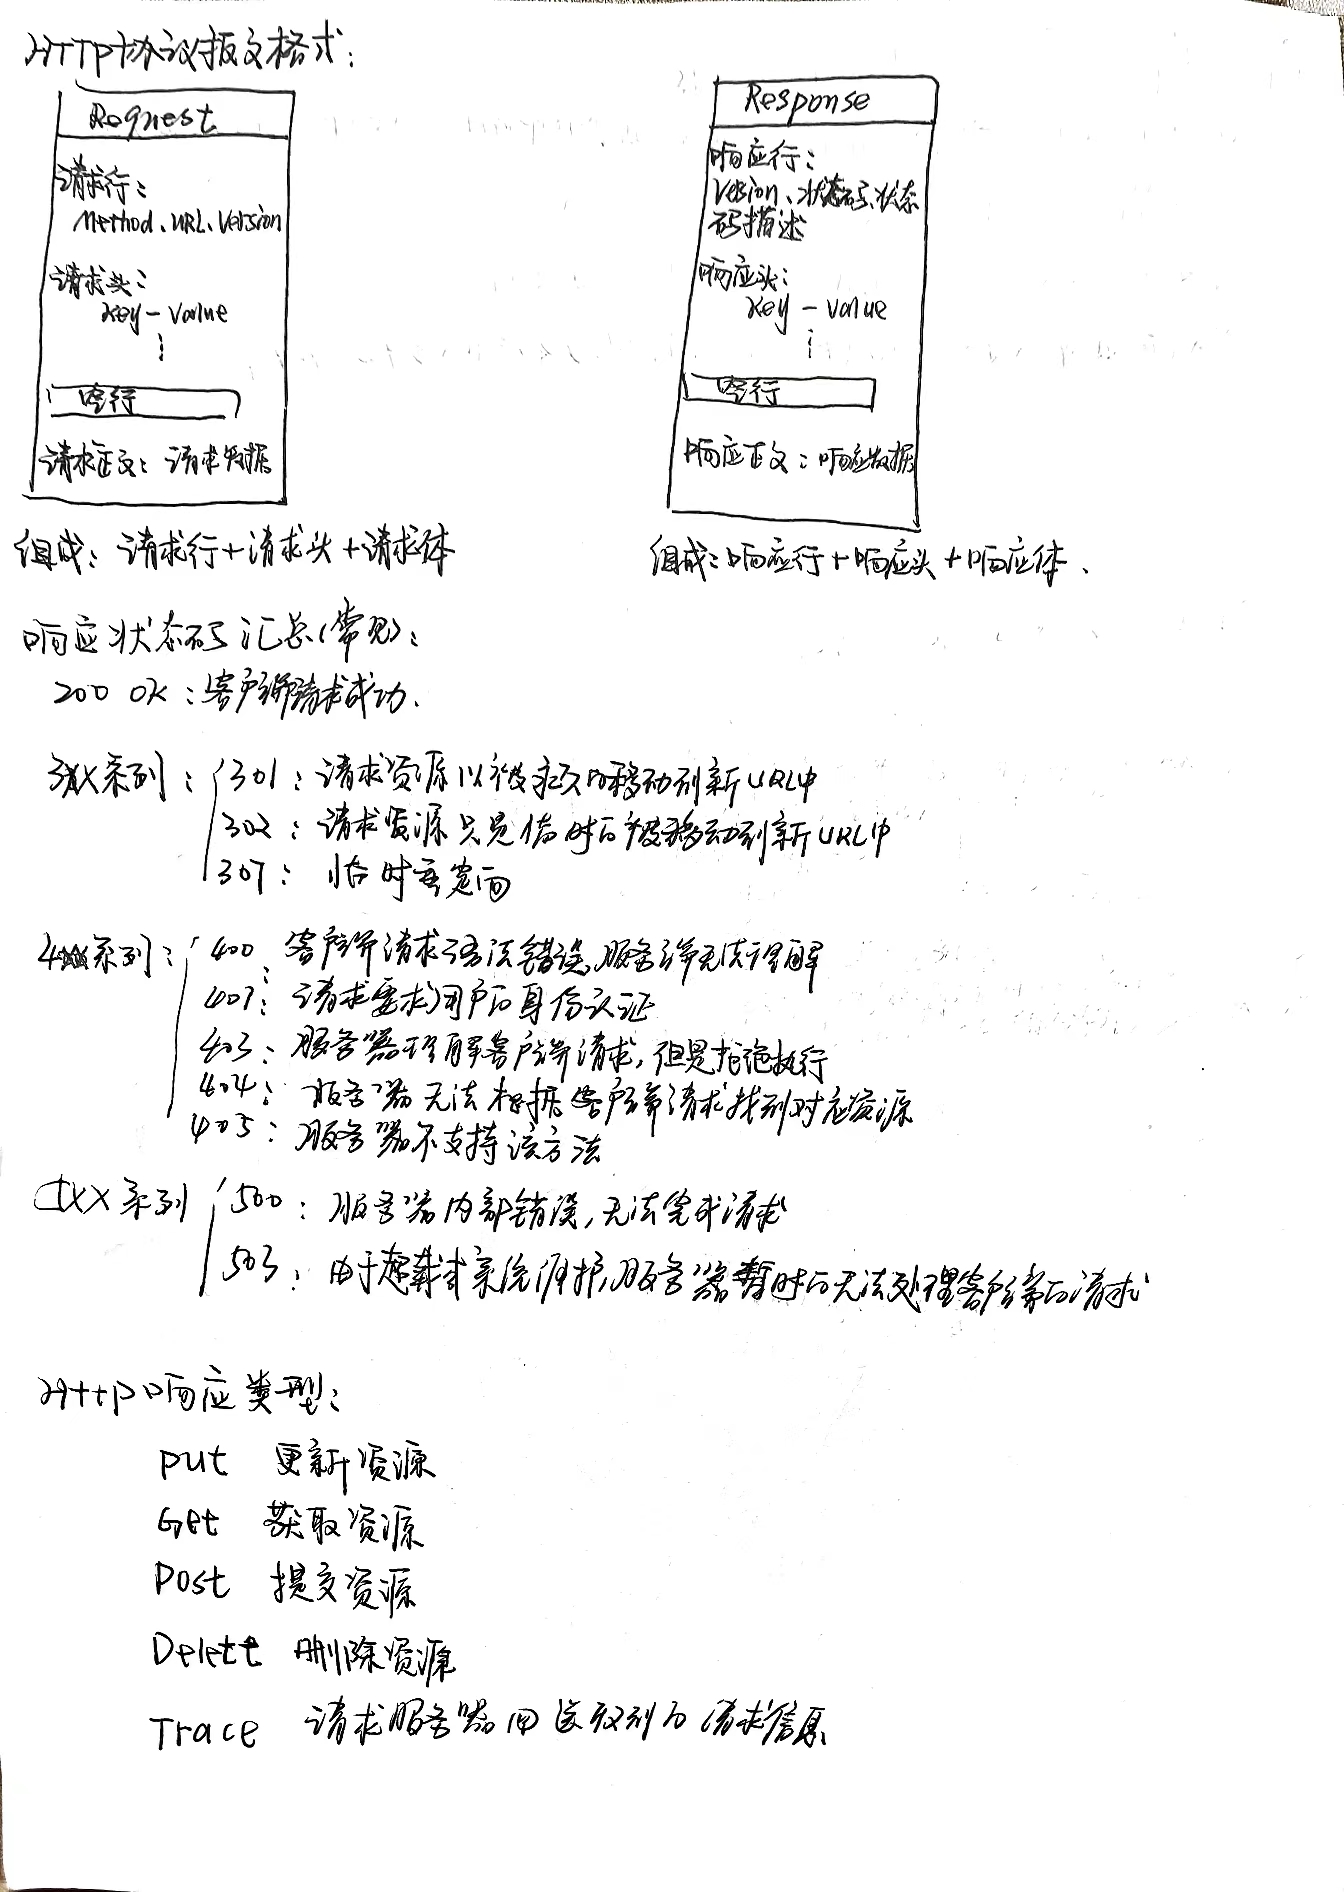 HTTP协议报文格式:
Request
请求行:
Method、URL、Version
请求头:
key-value
空行
请求正文: 请求数据
组成: 请求行+请求头+请求体
Response
响应行:
Vesion、状态码、状态
码描述
响应头:
key-value
空行
响应正文: 响应数据
组成: 响应行+响应头+响应体.
响应状态码汇总(常见):
200 OK: 客户端请求成功.
3XX系列:
301: 请求资源以被永久的移动到新URL中
302: 请求资源只是临时的被移动到新URL中
307: 临时重定向
4XX系列:
400: 客户端请求语法错误,服务端无法理解
401: 请求要求用户的身份认证
403: 服务器理解客户端请求,但是拒绝执行
404: 服务器无法根据客户端请求找到对应资源
405: 服务器不支持该方法
5XX系列
500: 服务器内部错误,无法完成请求
503: 由于超载或系统维护,服务器暂时的无法处理客户端的请求
Http响应类型:
put 更新资源
Get 获取资源
Post 提交资源
Delete 删除资源
Trace 请求服务器回送收到的请求信息